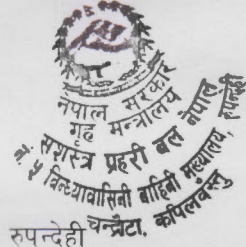 नेपाल सरकार
गृह मन्त्रालय
सशस्त्र प्रहरी बल नेपाल
नं. ५ बिन्ध्यावासिनी बाहिनी मुख्यालय, रुपन्देही
चन्द्रौटा, कपिलवस्तु
रुपन्देही